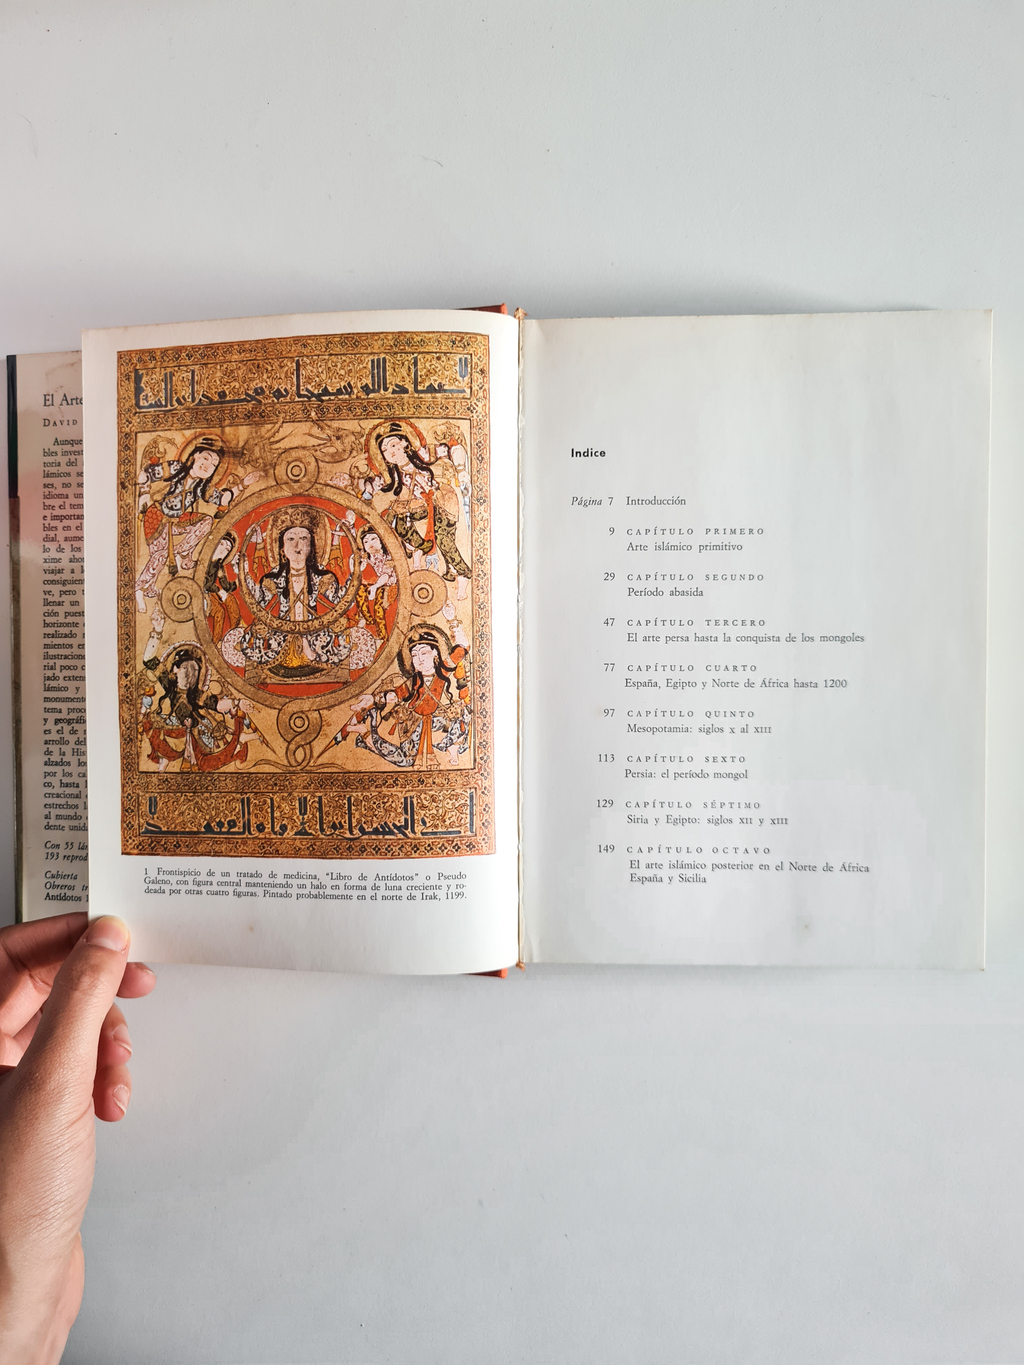 El Arte
DAVID
Aunque
bles invest
toria del
lámicos se
ses, no se
idioma un
bre el tem
e importan
bles en el
dial, aume
lo de los
xime aho
viajar a l
consiguien
ve, pero t
llenar un
ción puest
horizonte
realizado
mientos en
ilustracione
rial poco c
jado exten
lámico y
monument
tema proc
y geográfi
es el de
arrollo del
de la His
alzados lo
por los ca
co, hasta l
creacional
estrechos l
al mundo
dente unid
Con 55 lá
193 reprod
Cubierta
Obreros tr
Antídotos
1 Frontispicio de un tratado de medicina, "Libro de Antídotos" o Pseudo
Galeno, con figura central manteniendo un halo en forma de luna creciente y ro-
deada por otras cuatro figuras. Pintado probablemente en el norte de Irak, 1199.
Indice
Página 7 Introducción
9 CAPÍTULO PRIMERO
Arte islámico primitivo
29 CAPÍTULO SEGUNDO
Período abasida
47 CAPÍTULO TERCERO
El arte persa hasta la conquista de los mongoles
77 CAPÍTULO CUARTO
España, Egipto y Norte de África hasta 1200
97 CAPÍTULO QUINTO
Mesopotamia: siglos X al XIII
113 CAPÍTULO SEXTO
Persia: el período mongol
129 CAPÍTULO SÉPTIMO
Siria y Egipto: siglos XII y XIII
149 CAPÍTULO OCTAVO
El arte islámico posterior en el Norte de África
España y Sicilia